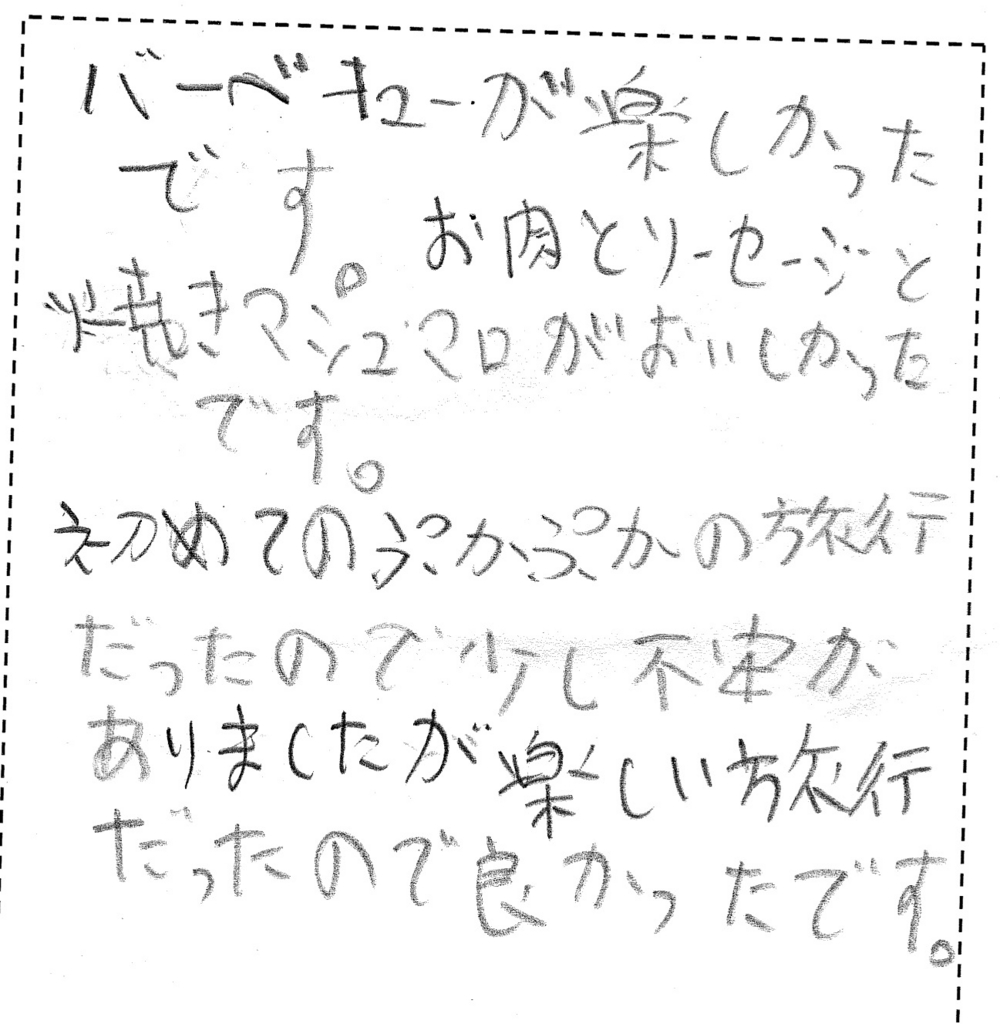 バーベキューが楽しかった
です。
お肉とソーセージと
焼きマシュマロがおいしかった
です。
初めてのぷかぷかの旅行
だったので少し不安が
ありましたが楽しい旅行
だったので良かったです。